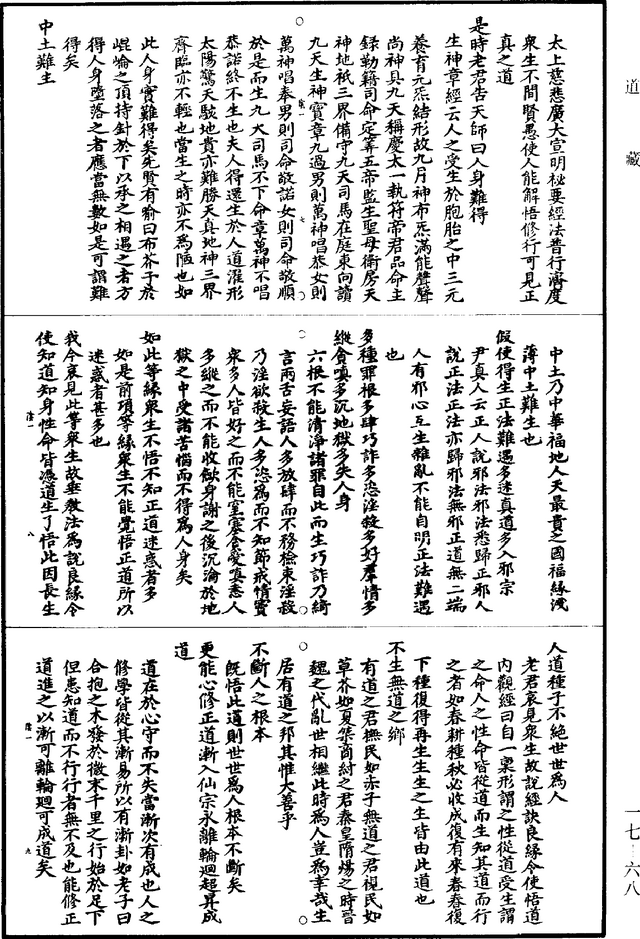 道藏
太上慈悲廣大宣明祕要經法普行濟度
衆生不間賢愚使人能解悟修行可見正
真之道
是時老君告天師曰人身難得
生神章經云人之受生於胞胎之中三元
養育九炁結形故九月神布炁滿能聲聲
尚神具九天稱慶太一執符帝君品命主
錄勒籍司命定筭五帝監生聖母衛房天
神地祇三界備守九天司馬在庭東向讀
九天生神寶章九過男則萬神唱恭女則
萬神唱奉男則司命敬諾女則司命敬順
於是而生九天司馬不下命章萬神不唱
恭諾終不生也夫人得還生於人道濯形
太陽驚天駭地貴亦難勝天真地神三界
齊臨亦不輕也當生之時亦不為陋也如
此人身實難得矣先賢有喻曰布芥子於
崐崘之頂待針於下以承之相遇之者方
得人身墮落之者應當無數如是可謂難
得矣
中土難生
中土乃中華福地人天最貴之國福緣淺
薄中土難生也
假使得生正法難遇多迷真道多入邪宗
尹真人云正人說邪法邪法悉歸正邪人
說正法正法亦歸邪法無邪正道無二端
人有邪心互生雜亂不能自明正法難遇
也
多種罪根多肆巧詐多恣淫殺多好羣情多
縱貪嗔多沉地獄多失人身
六根不能清淨諸罪自此而生巧詐乃綺
言兩舌妄語人多放肆而不務檢束淫殺
乃淫欲殺生人多恣為而不知節戒情實
衆多人皆好之而不能窒塞貪愛嗔恚人
多縱之而不能收斂身謝之後沉淪於地
獄之中受諸苦惱而不得為人身矣
如此等緣衆生不悟不知正道迷惑者多
如是前項等緣衆生不能覺悟正道所以
迷惑者甚多也
我今哀見此等衆生故垂教法為說良緣令
使知道知身性命皆憑道生了悟此因長生
人道種子不絶世世為人
老君哀見衆生故說經訣良緣令使悟道
内觀經曰自一稟形謂之性從道受生謂
之命人之性命皆從道而生知其道而行
之者如春耕種秋必收成復有來春春復
下種復得再生生生之生皆由此道也
不生無道之鄉
有道之君撫民如赤子無道之君視民如
草芥如夏桀商紂之君秦皇隋煬之時晉
魏之代亂世相繼此時為人豈為幸哉生
居有道之邦其惟大善乎
不斷人之根本
既悟此道則世世為人根本不斷矣
更能心修正道漸入仙宗永離輪迴超昇成
道
道在於心守而不失當漸次有成也人之
修學皆從其漸易所以有漸卦如老子曰
合抱之木發於微末千里之行始於足下
但患知道而不行行者無不及也能修正
道進之以漸可離輪迴可成道矣
一七－六八